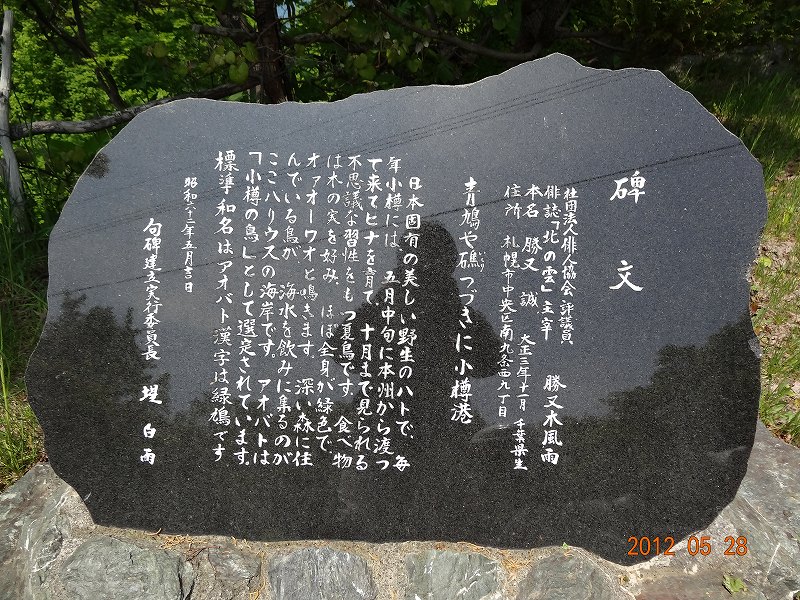 碑文
社団法人俳人協会評議員
俳誌「北の雲」主宰 勝又木風雨
本名 勝又 誠 大正三年十一月 千葉県生
住所 札幌市中央区南九条西九丁目
青鳩や礁つづきに小樽港
日本固有の美しい野生のハトで、毎
年小樽には、五月中旬に本州から渡っ
て来てヒナを育て、十月まで見られる
不思議な習性をもつ夏鳥です。食べ物
は木の実を好み、ほぼ全身が緑色で、
オァオーワオと鳴きます。深い森に住
んでいる鳥が、海水を飲みに集るのが
ここハリウスの海岸です。アオバトは
「小樽の鳥」として選定されています。
標準和名は、アオバト漢字は緑鳩です
昭和六十二年五月吉日
句碑建立実行委員長 堤 白雨
2012 05 28